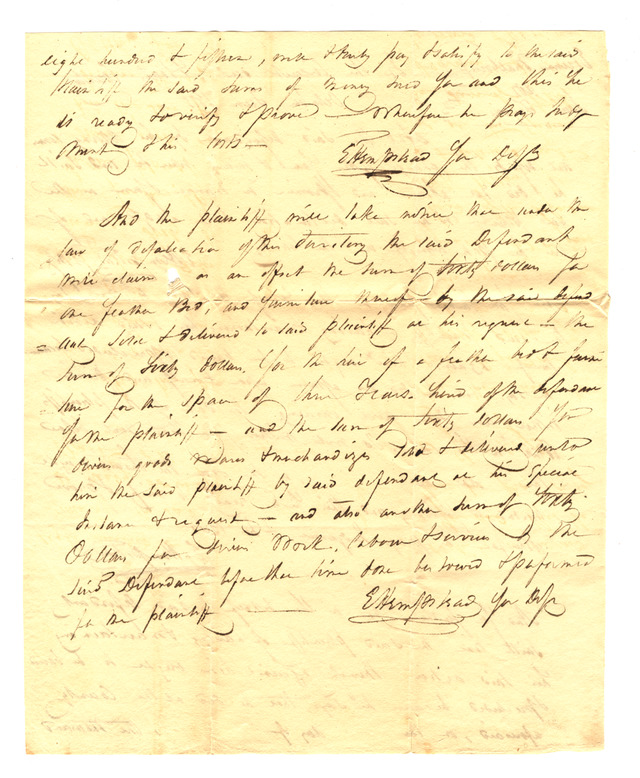 eight hundred & fifteen, well & truly pay & satisfy to the said
Plaintiff the said sum of money sued for and this he
is ready to verify & prove — Wherefore he prays Judg
ment & his costs —
E Hempstead for Deft
And the plaintiff will take notice that under the
law of defalcation of this Territory the said Defendant
will claim as an offset the sum of sixty dollars for
one feather Bed, and furniture thereof by the said defend
ant sold & delivered to said plaintiff at his request — the
sum of sixty dollars for the hire of a feather bed & furni
ture for the space of three years hired of the defendant
for the plaintiff — and the sum of sixty dollars for
divers goods wares & merchandizes sold & delivered unto
him the said plaintiff by said defendant at his Special
instance & request — and also another sum of sixty
Dollars for divers Work, labour & services by the
said Defendant before that time done bestowed & performed
for the plaintiff
E Hempstead for Deft